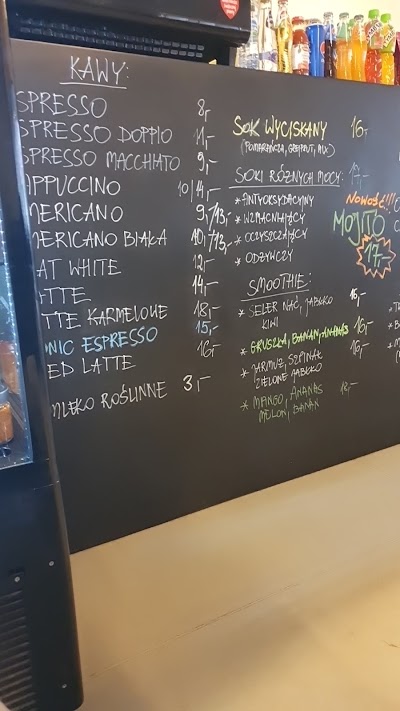 KAWY:
SPRESSO 8,-
SPRESSO DOPPIO 11,-
SPRESSO MACCHIATO 9,-
APPUCCINO 10/14,-
MERICANO 9,-/13,-
MERICANO BIAŁA 10,-/13,-
AT WHITE 12,-
ATTE 14,-
TTE KARMELOWE 18,-
ONIC ESPRESSO 15,-
ED LATTE 16,-
MLEKO ROŚLINNE 3,-
SOK WYCISKANY 16,-
(POMARAŃCZA, GREJPFRUT, MIX)
SOKI RÓŻNYCH MOCY: 17,-
* ANTYOKSYDACYJNY
* WZMACNIAJĄCY
* OCZYSZCZAJĄCY
* ODŻYWCZY
SMOOTHIE:
* SELER NAĆ, JABŁKO 16,-
KIWI
* GRUSZKA, BANAN, ANANAS 16,-
* JARMUŻ, SZPINAK 16,-
ZIELONE JABŁKO
* MANGO, ANANAS
MELON, BANAN
NOWOŚĆ!!!
MOJITO
17,-